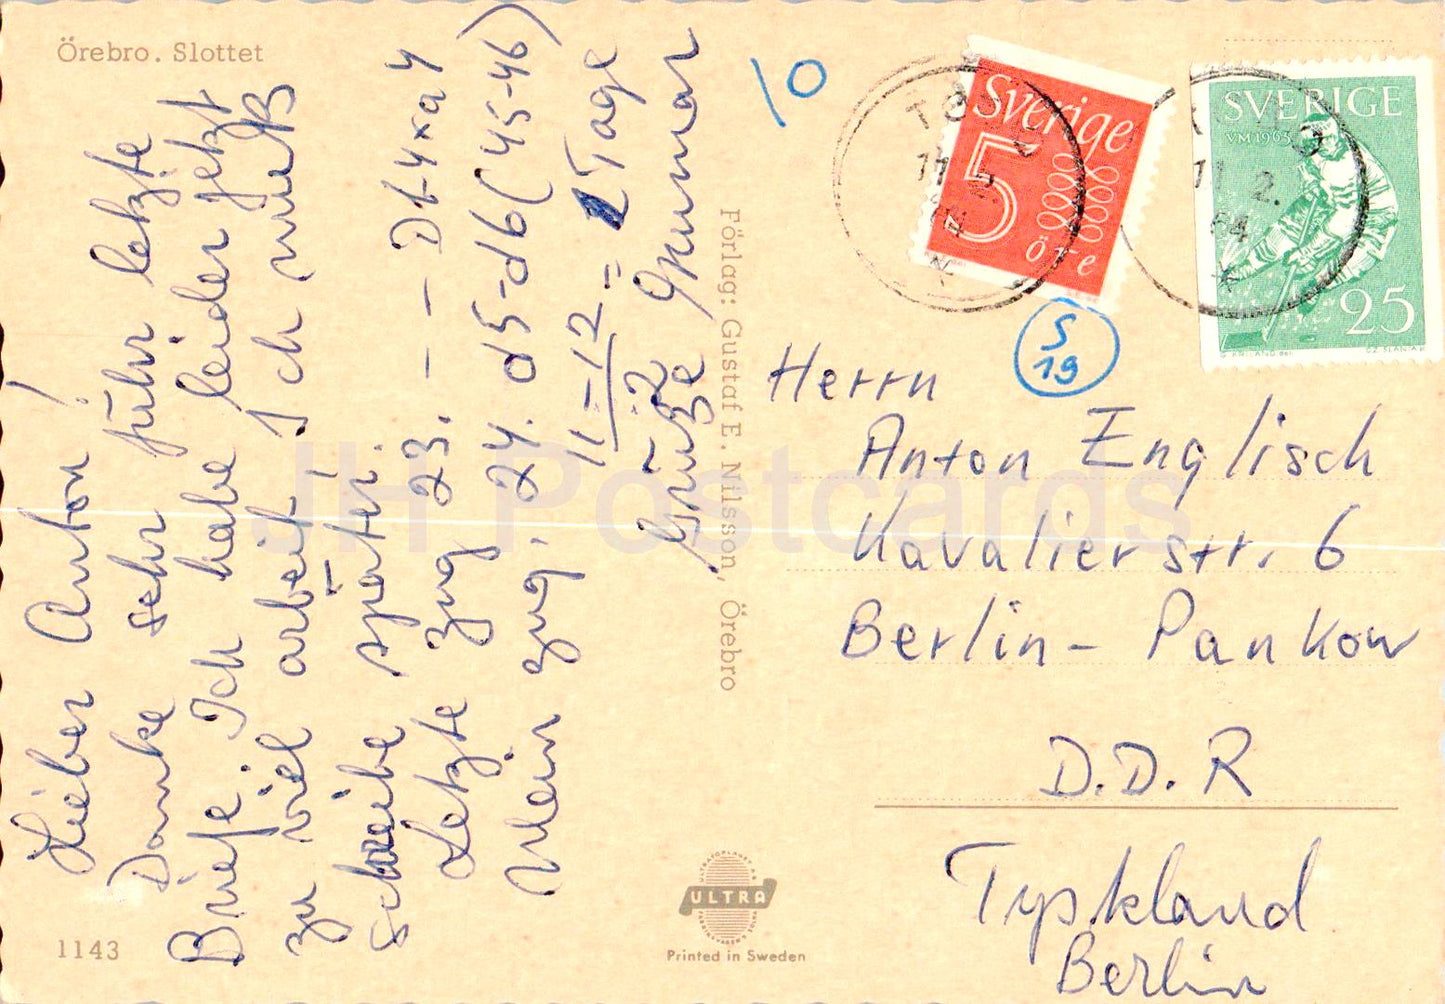 Örebro. Slottet
Lieber Anton!
Danke sehr führ letzte
Briefe. Ich habe leider jetzt
zu viel arbeit! Ich muß
schreibe später.
Letzte zug 23. - - - Db4xa4
Mein zug. 24. d5-d6 (45-46)
11-12 = 2 Tage
:2
Grüße Gunnar
1143
Förlag: Gustaf E. Nilsson, Örebro
ULTRA
Printed in Sweden
10
Sverige
5
öre
11 2
64
SVERIGE
VM 1963
25
11. 2.
64
S
19
Herrn
Anton Englisch
Kavalierstr. 6
Berlin - Pankow
D.D.R
Tyskland
Berlin
JH Postcards